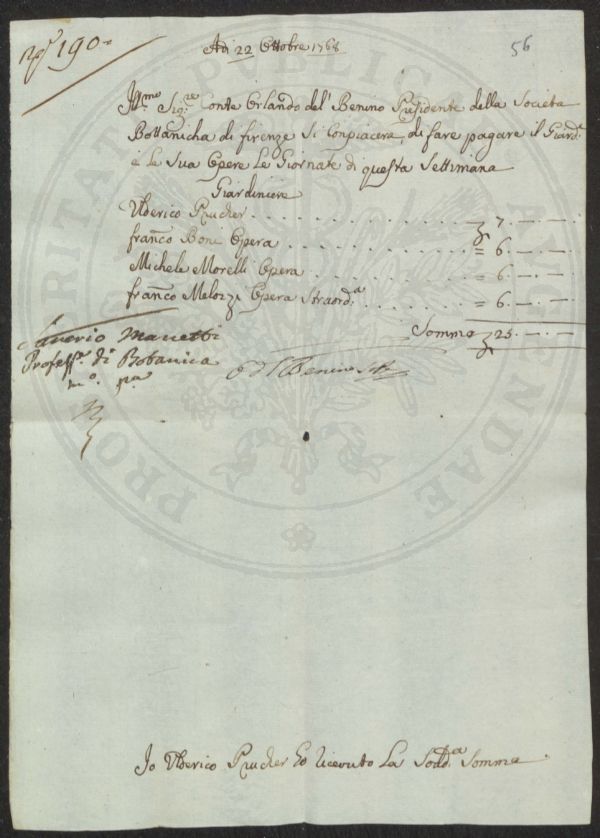 n.º 190 =
56
Adi 22 Ottobre 1768
Ill.mo Sig.re Conte Orlando del' Benino Presidente della Società
Bottanicha di firenze si Conpiacerà, di fare pagare il Giard.e
e le Sua Opere le Giornate di questa Settimana
Giardiniere
Ulderico Prucher . . . . . . . . . . . 7 . — . —
franco Boni Opera . . . . . . . . . . = 6 . — . —
Michele Morelli Opera . . . . . . . . = 6 . — . —
franco Melozzi Opera Straord.a . . . . = 6 . — . —
Somma 25 . — . —
Saverio Manetti
Profess.e di Botanica
m.o p.a
O del Benino
Io Ulderico Prucher Ho ricevuto La Sodd.a Somma
PROSPERITATI PUBLICAE AUGENDAE